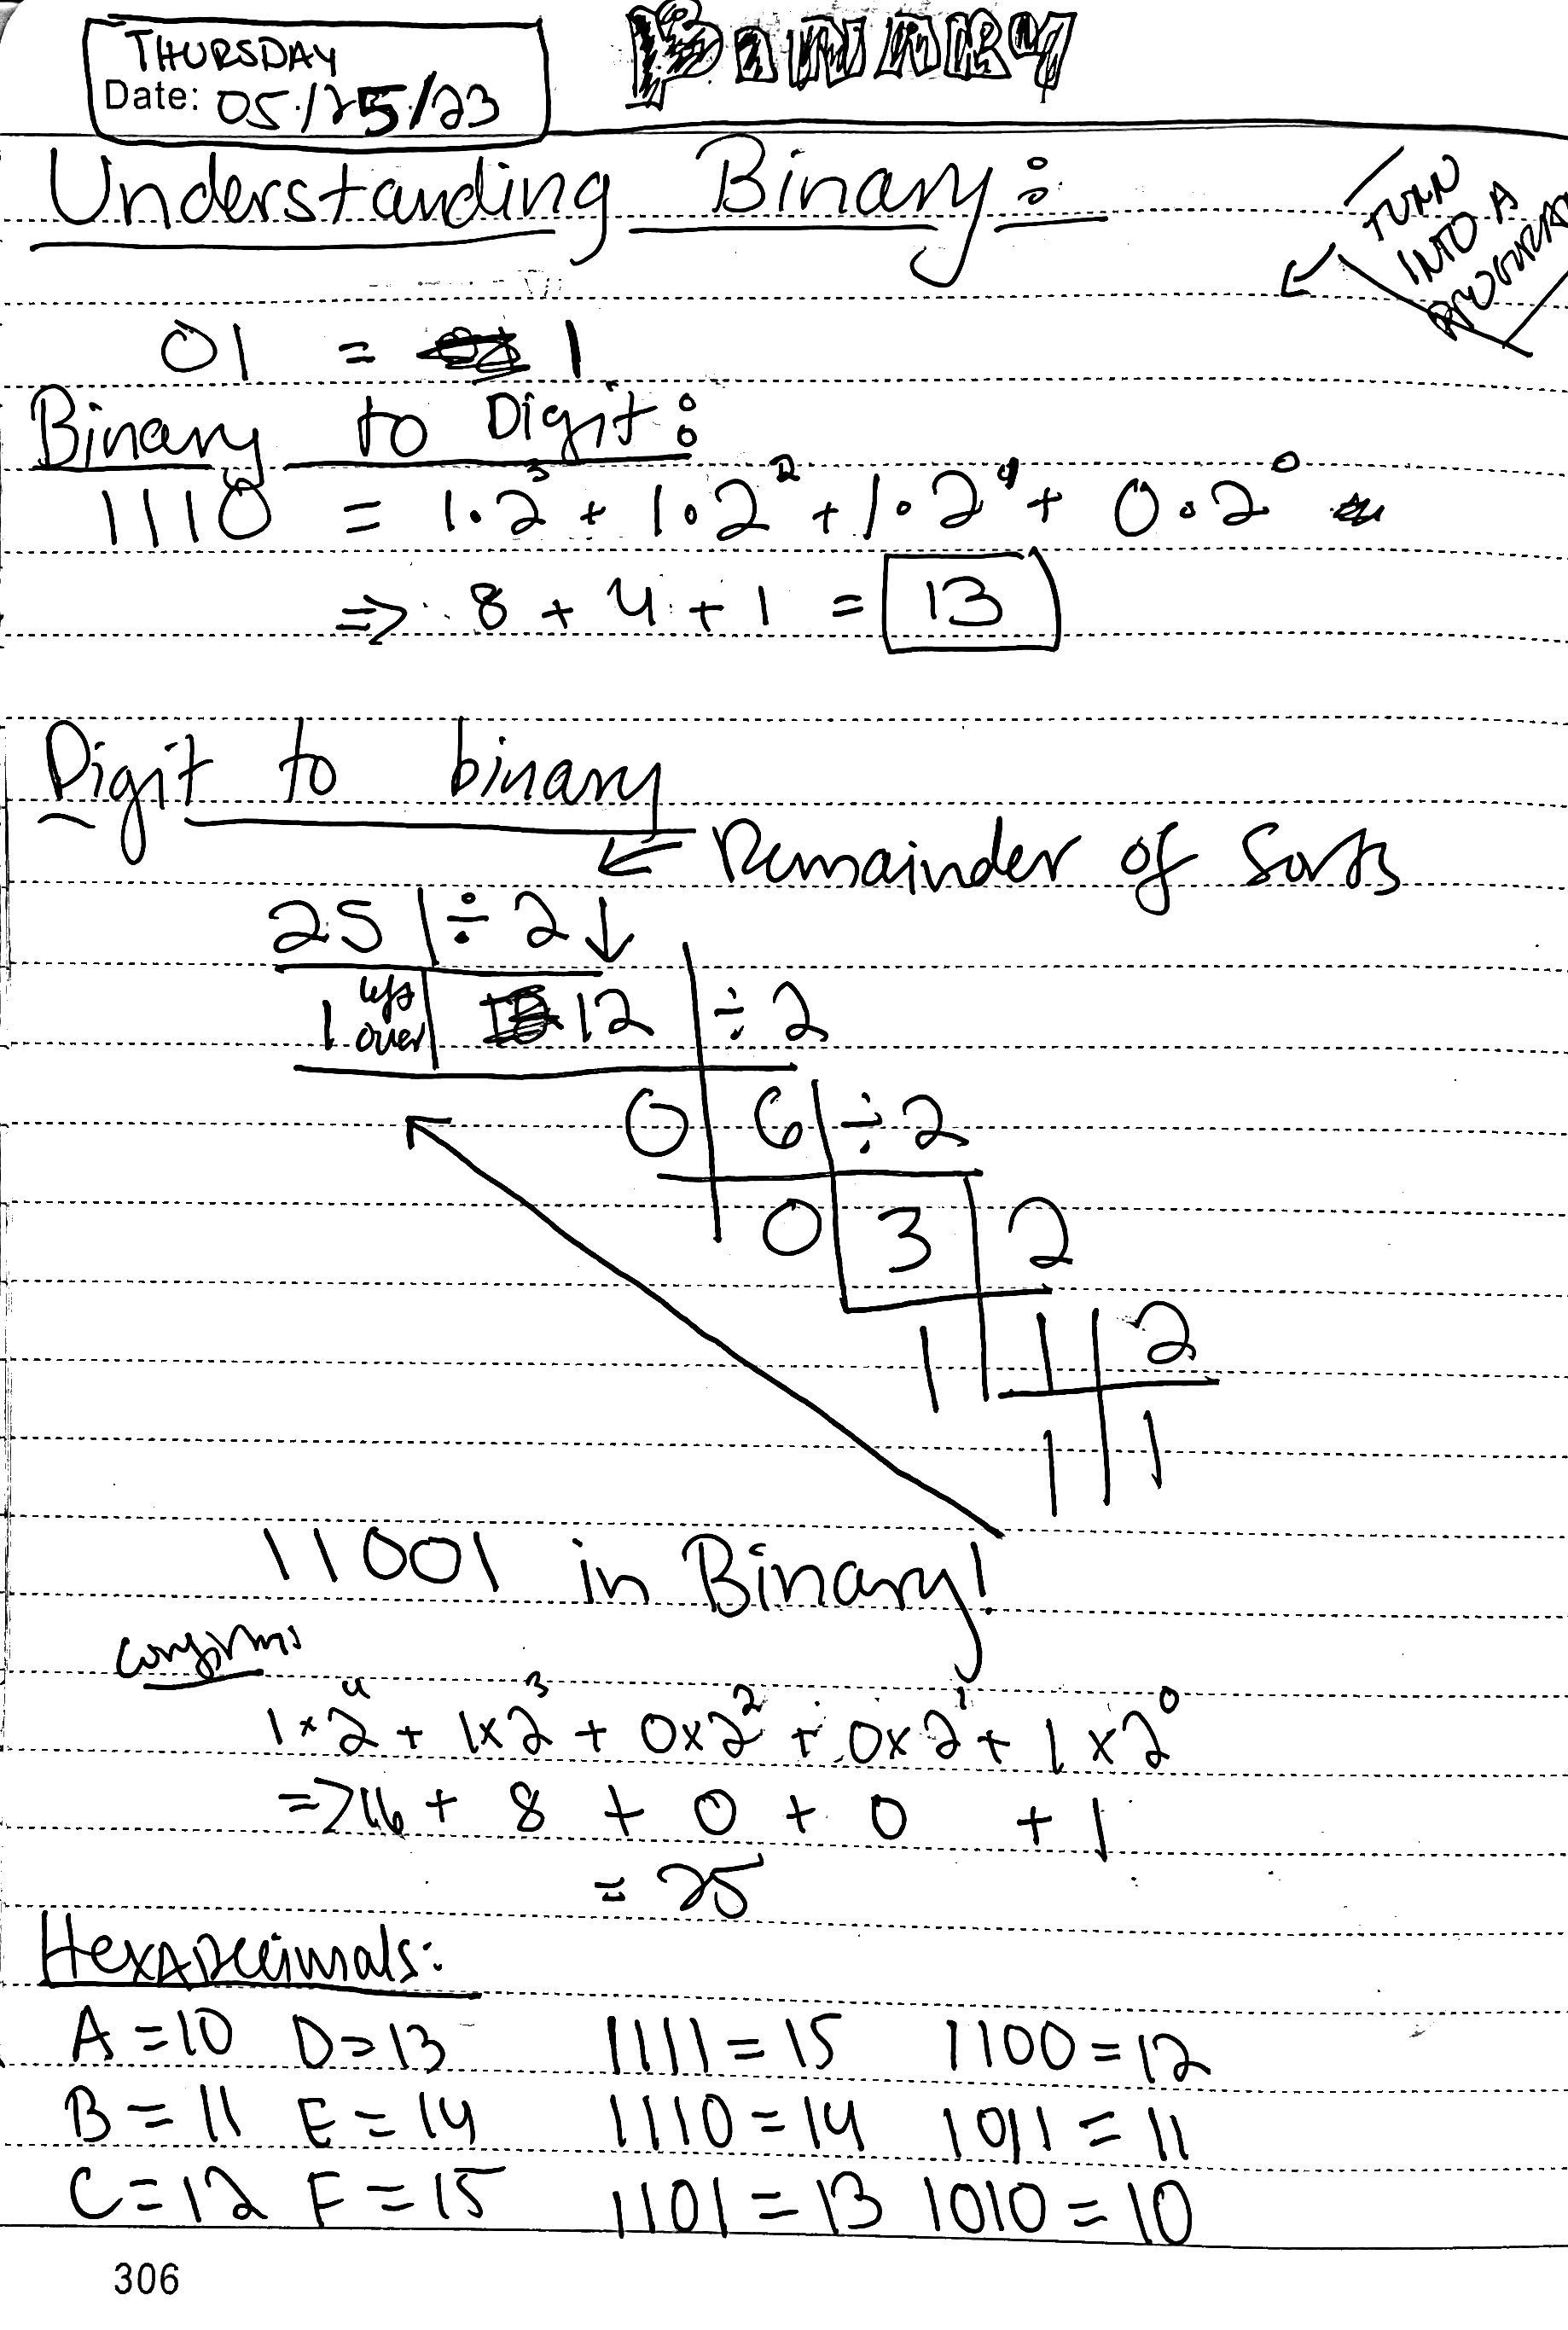 BINARY
THURSDAY
Date: 05/25/23
Understanding Binary:
TURN
INTO A
PROGRAM
01 = 1
Binary to Digit:
1110 = 1·2³ + 1·2² + 1·2¹ + 0·2⁰
=> 8 + 4 + 1 = 13
Digit to binary
← Remainder of Sorts
25 ÷ 2 ↓
1 left over 12 ÷ 2
0 6 ÷ 2
0 3 2
1 1 2
1 1
11001 in Binary!
Confirms
1×2⁴ + 1×2³ + 0×2² + 0×2¹ + 1×2⁰
=> 16 + 8 + 0 + 0 + 1
= 25
Hexadecimals:
A = 10 D = 13 1111 = 15 1100 = 12
B = 11 E = 14 1110 = 14 1011 = 11
C = 12 F = 15 1101 = 13 1010 = 10
306